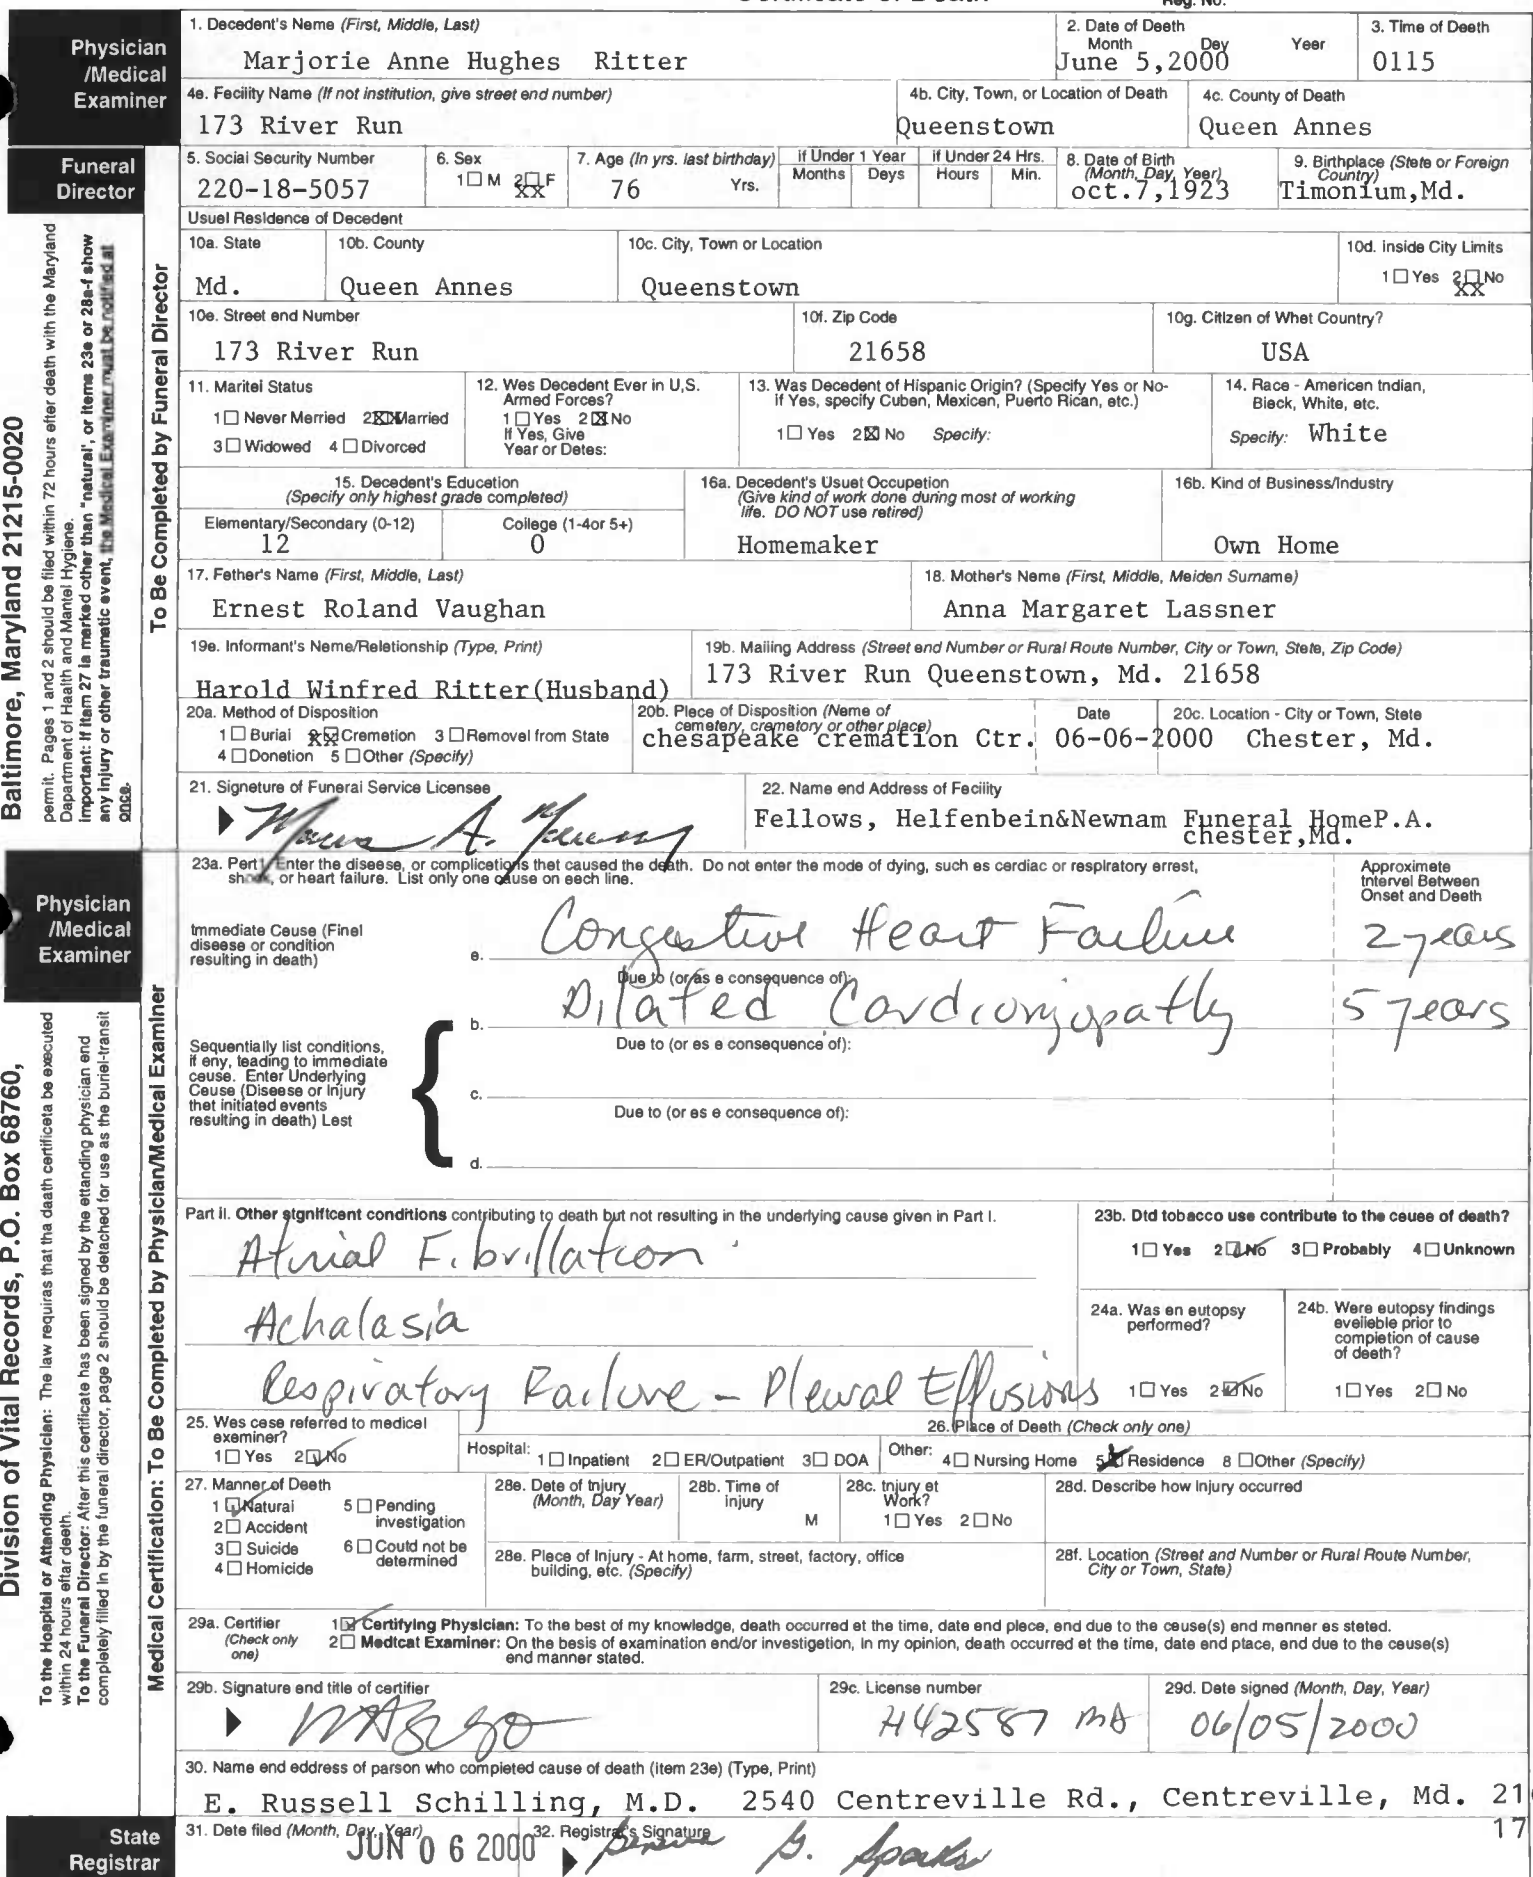 Physician
/Medical
Examiner
1. Decedent's Neme (First, Middle, Last)
Marjorie Anne Hughes Ritter
2. Date of Deeth
Month Dey Yeer
June 5,2000
3. Time of Deeth
0115
4e. Fecility Name (If not institution, give street end number)
173 River Run
4b. City, Town, or Location of Death
Queenstown
4c. County of Death
Queen Annes
Funeral
Director
5. Social Security Number
220-18-5057
6. Sex
1☐ M 2☐ F
XX
7. Age (In yrs. last birthday)
76 Yrs.
If Under 1 Year
Months Deys
If Under 24 Hrs.
Hours Min.
8. Date of Birth
(Month, Day, Year)
oct.7,1923
9. Birthplace (Stete or Foreign
Country)
Timonium,Md.
Usuel Residence of Decedent
10a. State
Md.
10b. County
Queen Annes
10c. City, Town or Location
Queenstown
10d. inside City Limits
1 ☐ Yes 2☐ No
XX
10e. Street end Number
173 River Run
10f. Zip Code
21658
10g. Citizen of Whet Country?
USA
11. Maritel Status
1☐ Never Merried 2☒ Married
3☐ Widowed 4 ☐ Divorced
12. Wes Decedent Ever in U.S.
Armed Forces?
1☐ Yes 2☒ No
If Yes, Give
Year or Detes:
13. Was Decedent of Hispanic Origin? (Specify Yes or No-
If Yes, specify Cuben, Mexican, Puerto Rican, etc.)
1☐ Yes 2☒ No Specify:
14. Race - American Indian,
Bleck, White, etc.
Specify: White
15. Decedent's Education
(Specify only highest grade completed)
Elementary/Secondary (0-12)
12
College (1-4or 5+)
0
16a. Decedent's Usuet Occupetion
(Give kind of work done during most of working
life. DO NOT use retired)
Homemaker
16b. Kind of Business/Industry
Own Home
17. Father's Name (First, Middle, Last)
Ernest Roland Vaughan
18. Mother's Neme (First, Middle, Meiden Surname)
Anna Margaret Lassner
19e. Informant's Neme/Reletionship (Type, Print)
Harold Winfred Ritter(Husband)
19b. Mailing Address (Street end Number or Rural Route Number, City or Town, Stete, Zip Code)
173 River Run Queenstown, Md. 21658
20a. Method of Disposition
1 ☐ Burial 2☒ Cremetion 3 ☐ Removal from State
4 ☐ Donetion 5 ☐ Other (Specify)
20b. Plece of Disposition (Neme of
cemetery, cremetory or other place)
chesapeake cremation Ctr.
Date
06-06-2000
20c. Location - City or Town, State
Chester, Md.
21. Signature of Funeral Service Licensee
22. Name end Address of Fecility
Fellows, Helfenbein&Newnam Funeral HomeP.A.
chester,Md.
Baltimore, Maryland 21215-0020
permit. Pages 1 and 2 should be filed within 72 hours efter death with the Maryland
Dapartment of Haalth and Mantel Hygiene.
Important: If Itam 27 is marked other than "natural', or items 23e or 28a-f show
any injury or other traumatic event, the Medical Examiner must be notified at
once.
To Be Completed by Funeral Director
Physician
/Medical
Examiner
23a. Pert I. Enter the diseese, or complicetions thet caused the death. Do not enter the mode of dying, such es cerdiac or respiratory errest,
shock, or heart failure. List only one cause on eech line.
Approximete
Intervel Between
Onset and Deeth
Immediate Ceuse (Finel
diseese or condition
resulting in death)
e. Congestive Heart Failure 2 years
Due to (or as e consequence of):
b. Dilated Cardiomyopathy 5 years
Due to (or es e consequence of):
Sequentially list conditions,
if eny, leading to immediate
ceuse. Enter Underlying
Ceuse (Diseese or Injury
thet initiated events
resulting in death) Lest
c.
Due to (or es e consequence of):
d.
Part II. Other significent conditions contributing to death but not resulting in the underlying cause given in Part I.
Atrial Fibrillation
Achalasia
Respiratory Failure - Pleural Effusions
23b. Dtd tobacco use contribute to the ceuse of death?
1☐ Yes 2☑ No 3☐ Probably 4☐ Unknown
24a. Was en eutopsy
performed?
1☐ Yes 2☑ No
24b. Were eutopsy findings
eveileble prior to
completion of cause
of deeth?
1☐ Yes 2☐ No
25. Wes cese referred to medicel
exeminer?
1☐ Yes 2☑ No
26. Place of Death (Check only one)
Hospital: 1☐ Inpatient 2☐ ER/Outpatient 3☐ DOA
Other: 4☐ Nursing Home 5☒ Residence 8 ☐ Other (Specify)
27. Manner of Deeth
1 ☑ Natural 5 ☐ Pending
investigation
2☐ Accident
3☐ Suicide 6☐ Could not be
determined
4☐ Homicide
28e. Dete of tnjury
(Month, Day Year)
28b. Time of
injury
M
28c. tnjury et
Work?
1☐ Yes 2☐ No
28d. Describe how Injury occurred
28e. Plece of Injury - At home, farm, street, factory, office
building, etc. (Specify)
28f. Location (Street and Number or Rural Route Number,
City or Town, State)
29a. Certifier
(Check only
one)
1☑ Certifying Physician: To the best of my knowledge, death occurred et the time, date end plece, end due to the ceuse(s) end menner es steted.
2☐ Medtcat Examiner: On the besis of examination end/or investigetion, In my opinion, death occurred et the time, date end ptace, end due to the ceuse(s)
end manner stated.
29b. Signature end title of certifier
29c. License number
H42587 MD
29d. Dete signed (Month, Day, Year)
06/05/2000
30. Name end eddress of parson who completed cause of death (item 23e) (Type, Print)
E. Russell Schilling, M.D. 2540 Centreville Rd., Centreville, Md. 21
17
Division of Vital Records, P.O. Box 68760,
To the Hospital or Attanding Physician: The law requiras that tha daath certificeta be executed
within 24 hours eftar deeth.
To the Funeral Director: After this certificate has been signed by the ettanding physician end
completely filled in by the funeral director, page 2 should be detached for use as the buriel-transit
Medical Certification: To Be Completed by Physician/Medical Examiner
State
Registrar
31. Date filed (Month, Day, Year)
JUN 06 2000
32. Registrar's Signature
G. Sparks